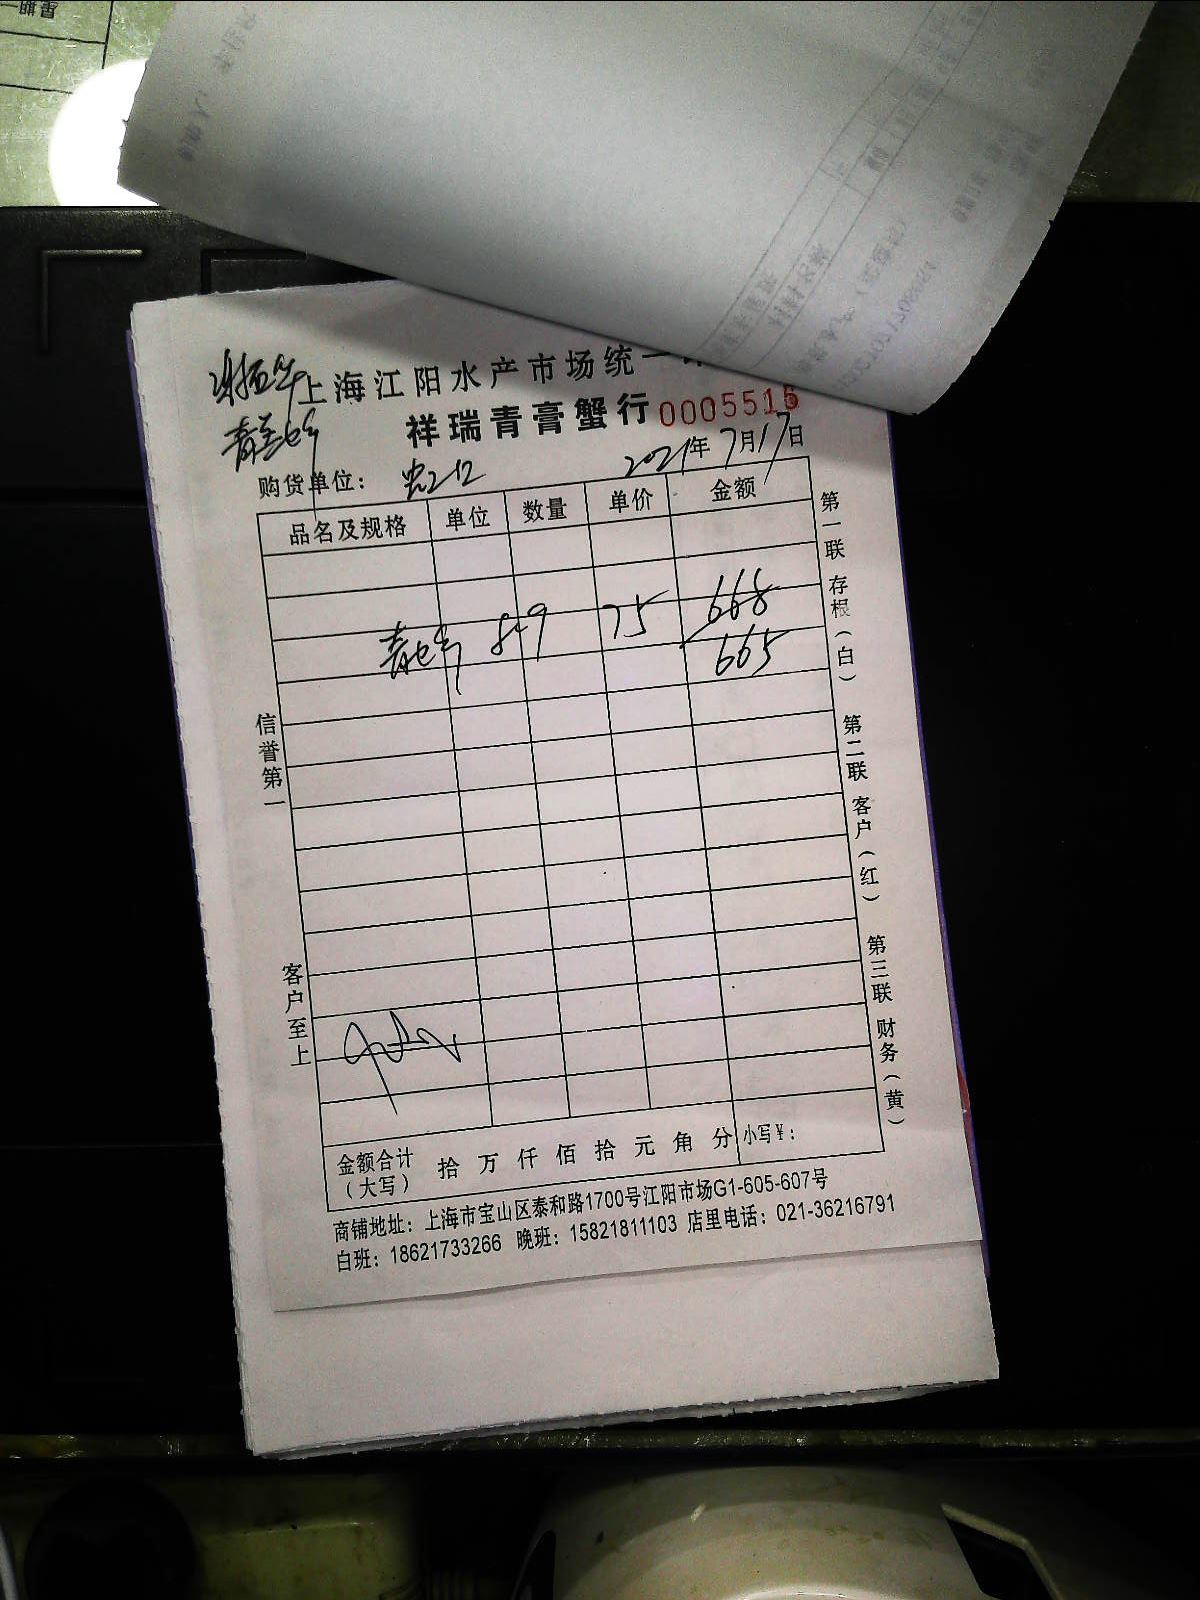 上海江阳水产市场统一
祥瑞青膏蟹行 0005515
购货单位：
2021年7月17日
品名及规格 单位 数量 单价 金额
8.9 75 668
665
信誉第一
客户至上
第一联 存根（白） 第二联 客户（红） 第三联 财务（黄）
金额合计（大写） 拾 万 仟 佰 拾 元 角 分 小写¥：
商铺地址：上海市宝山区泰和路1700号江阳市场G1-605-607号
白班：18621733266 晚班：15821811103 店里电话：021-36216791